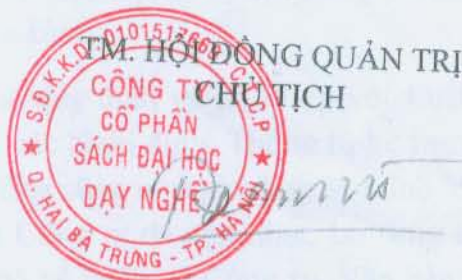 TM. HỘI ĐỒNG QUẢN TRỊ
CHỦ TỊCH
S.Đ.K.K.D: 0101517669 - C.T.C.P
CÔNG TY
CỔ PHẦN
SÁCH ĐẠI HỌC
DẠY NGHỀ
Q. HAI BÀ TRƯNG - TP. HÀ NỘI